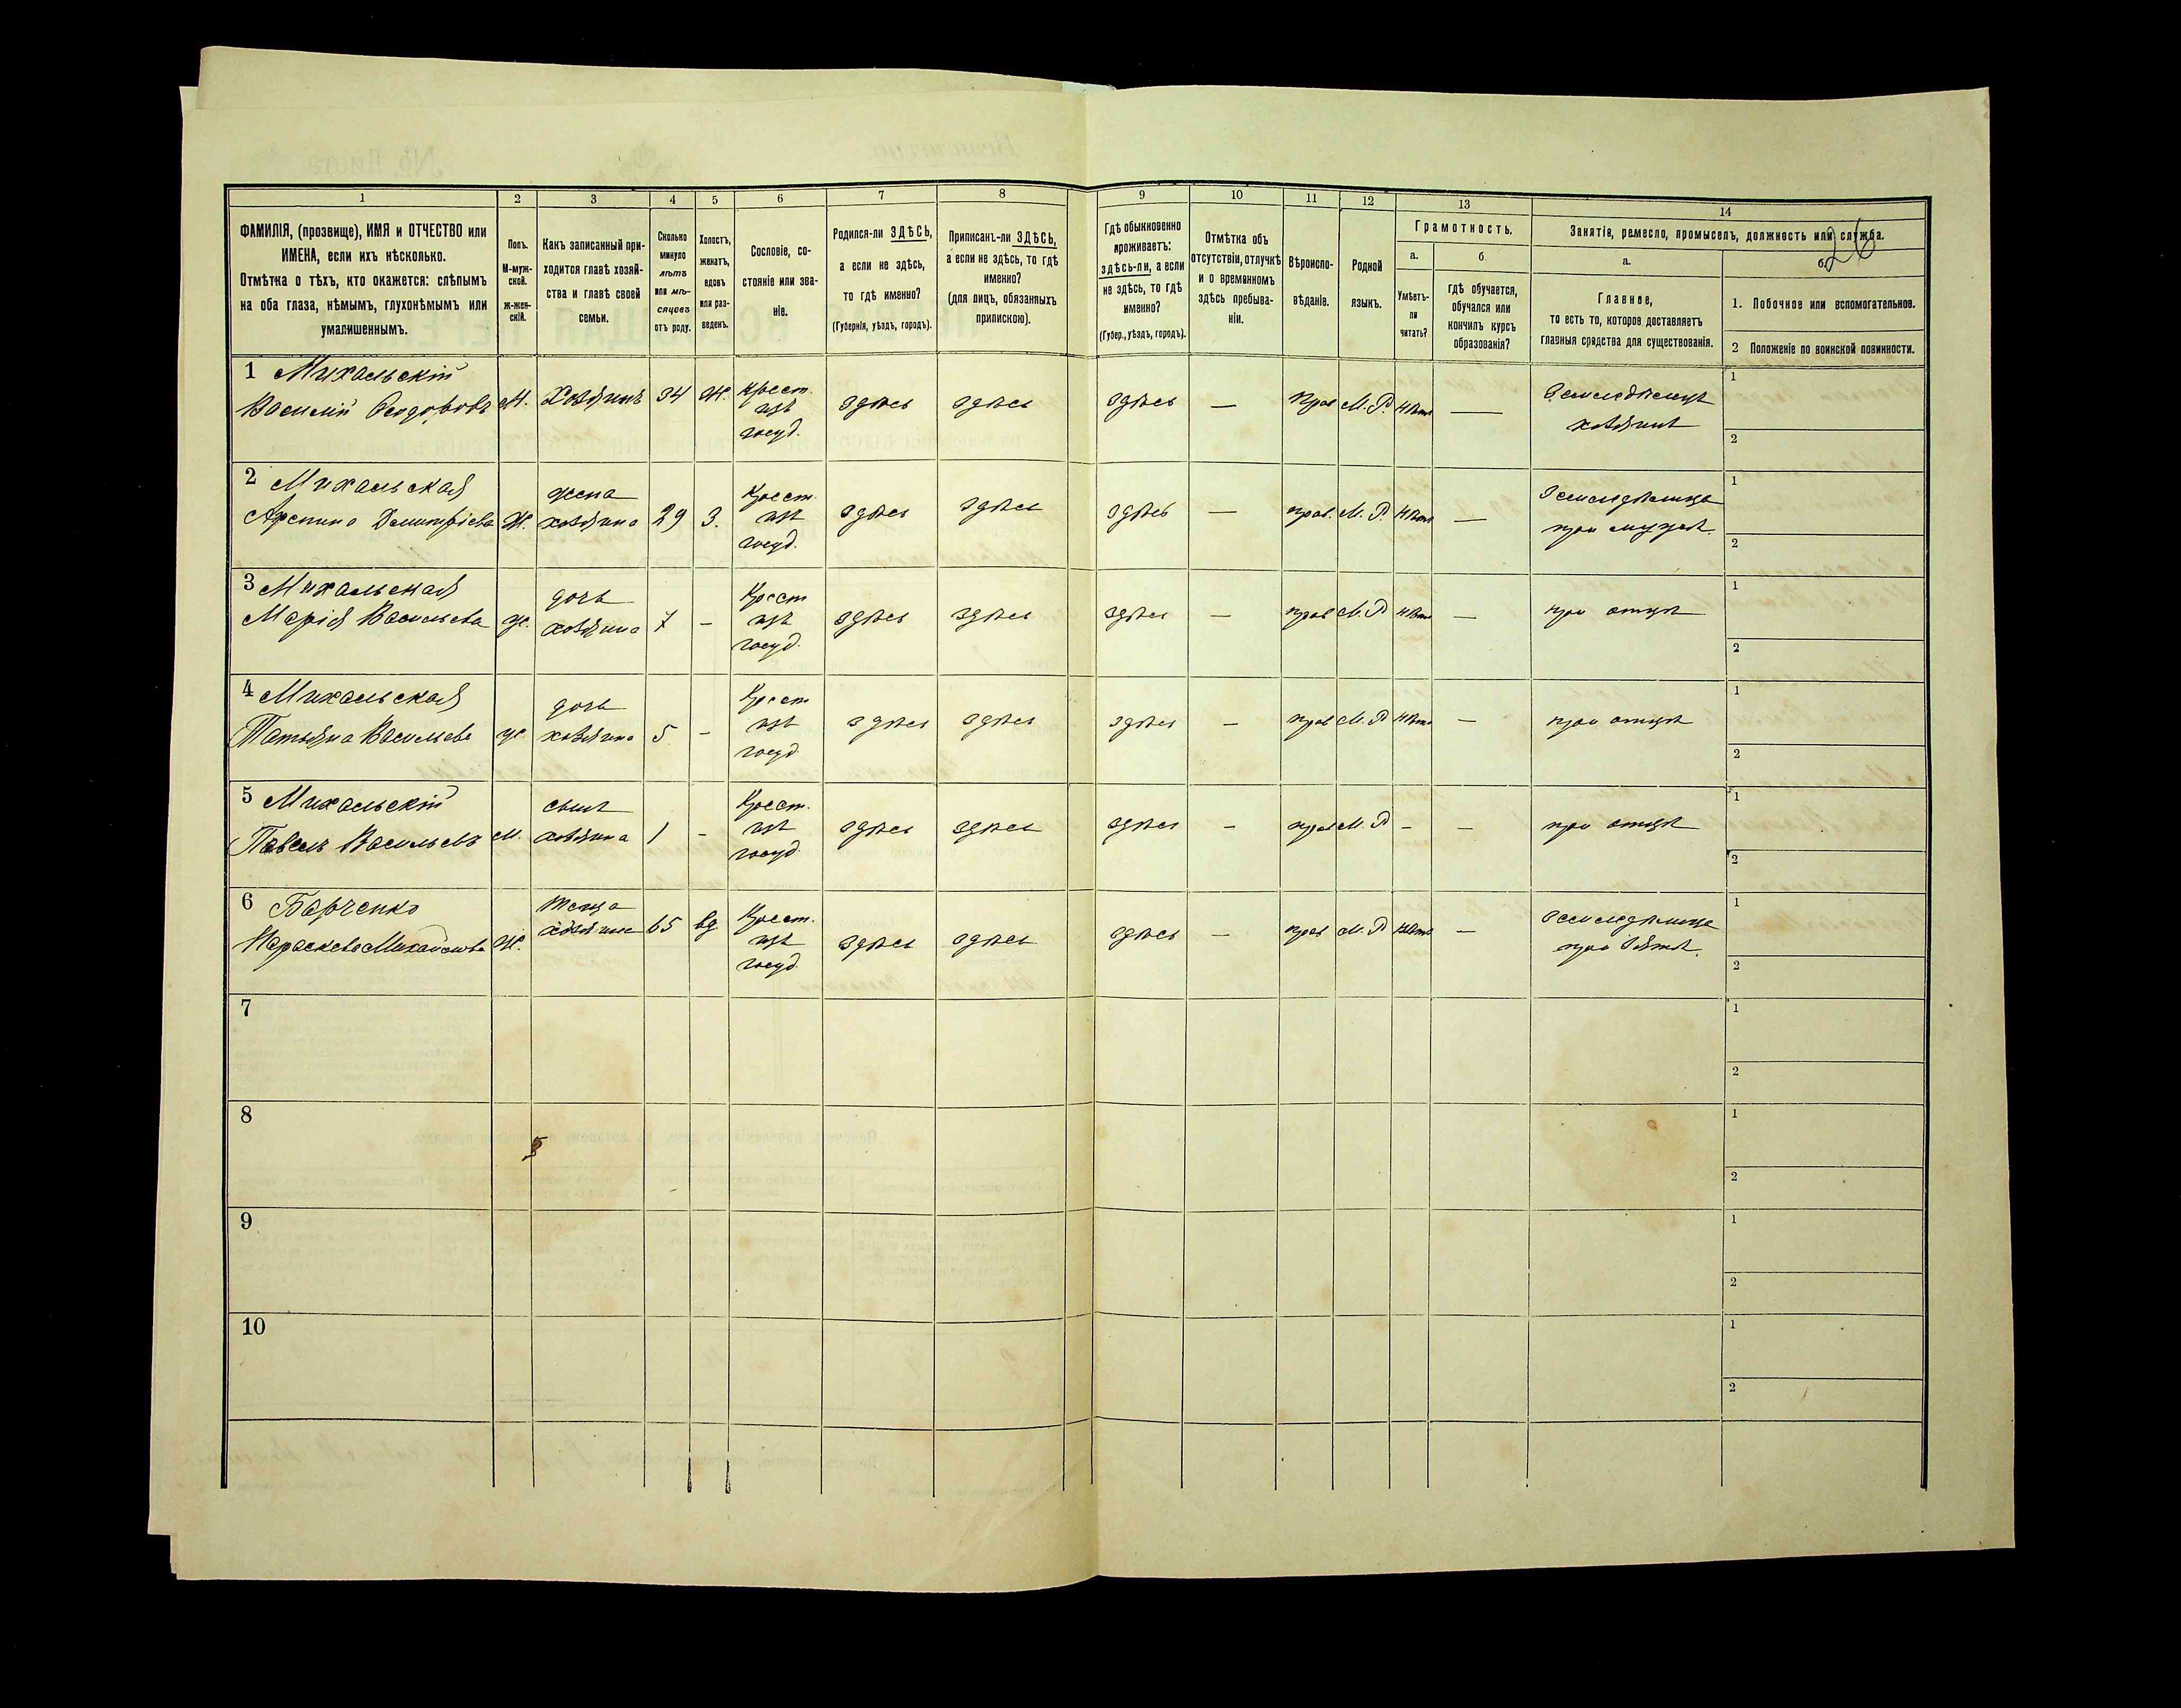 1 2 3 4 5 6 7 8 9 10 11 12 13 14
ФАМИЛІЯ, (прозвище), ИМЯ и ОТЧЕСТВО или
ИМЕНА, если ихъ нѣсколько.
Отмѣтка о тѣхъ, кто окажется: слѣпымъ
на оба глаза, нѣмымъ, глухонѣмымъ или
умалишеннымъ.
Полъ.
М-муж-
ской.
ж-жен-
скій.
Какъ записанный при-
ходится главѣ хозяй-
ства и главѣ своей
семьи.
Сколько
минуло
лѣтъ
или мѣ-
сяцевъ
отъ роду.
Холостъ,
женатъ,
вдовъ
или раз-
веденъ.
Сословіе, со-
стояніе или зва-
ніе.
Родился-ли ЗДѢСЬ,
а если не здѣсь,
то гдѣ именно?
(Губернія, уѣздъ, городъ).
Приписанъ-ли ЗДѢСЬ,
а если не здѣсь, то гдѣ
именно?
(для лицъ, обязанныхъ
припискою).
Гдѣ обыкновенно
проживаетъ:
здѣсь-ли, а если
не здѣсь, то гдѣ
именно?
(Губер., уѣздъ, городъ).
Отмѣтка объ
отсутствіи, отлучкѣ
и о временномъ
здѣсь пребыва-
ніи.
Вѣроиспо-
вѣданіе.
Родной
языкъ.
Грамотность.
а.
Умѣетъ-
ли
читать?
б.
гдѣ обучается,
обучался или
кончилъ курсъ
образованія?
Занятіе, ремесло, промыселъ, должность или служба.
26
а.
Главное,
то есть то, которое доставляетъ
главныя средства для существованія.
б.
1. Побочное или вспомогательное.
2 Положеніе по воинской повинности.
1 Михальскій
Василій Ѳеодоровъ
М.
Хозяинъ
34
Ж.
Крест.
изъ
госуд.
здѣсь
здѣсь
здѣсь
—
Прав
М. Р.
Нѣтъ
—
Земледѣлецъ
хозяинъ
1
2
2 Михальская
Дмитріева
Ж.
жена
хозяина
29
З.
Крест.
изъ
госуд.
здѣсь
здѣсь
здѣсь
—
прав.
М. Р.
Нѣтъ
—
Земледѣлица
при мужѣ.
1
2
3 Михальская
Марія Васильева
Ж.
дочь
хозяина
7
-
Крест
изъ
госуд.
здѣсь
здѣсь
здѣсь
—
прав
М. Р
Нѣтъ
—
при отцѣ
1
2
4 Михальская
Татьяна Васильева
Ж.
дочь
хозяина
5
-
Крест
изъ
госуд
здѣсь
здѣсь
здѣсь
-
прав
М. Р
Нѣтъ
—
при отцѣ
1
2
5 Михальскій
Павелъ Васильевъ
М.
сынъ
хозяина
1
-
Крест.
изъ
госуд.
здѣсь
здѣсь
здѣсь
-
прав
М. Р
-
-
при отцѣ
1
2
6 Барченко
Параскева Михайлова
Ж.
теща
хозяина
65
вд
Крест.
изъ
госуд.
здѣсь
здѣсь
здѣсь
—
прав
М. Р
Нѣтъ
—
Земледѣлица
при зятѣ.
1
2
7
1
2
8
1
2
9
1
2
10
1
2